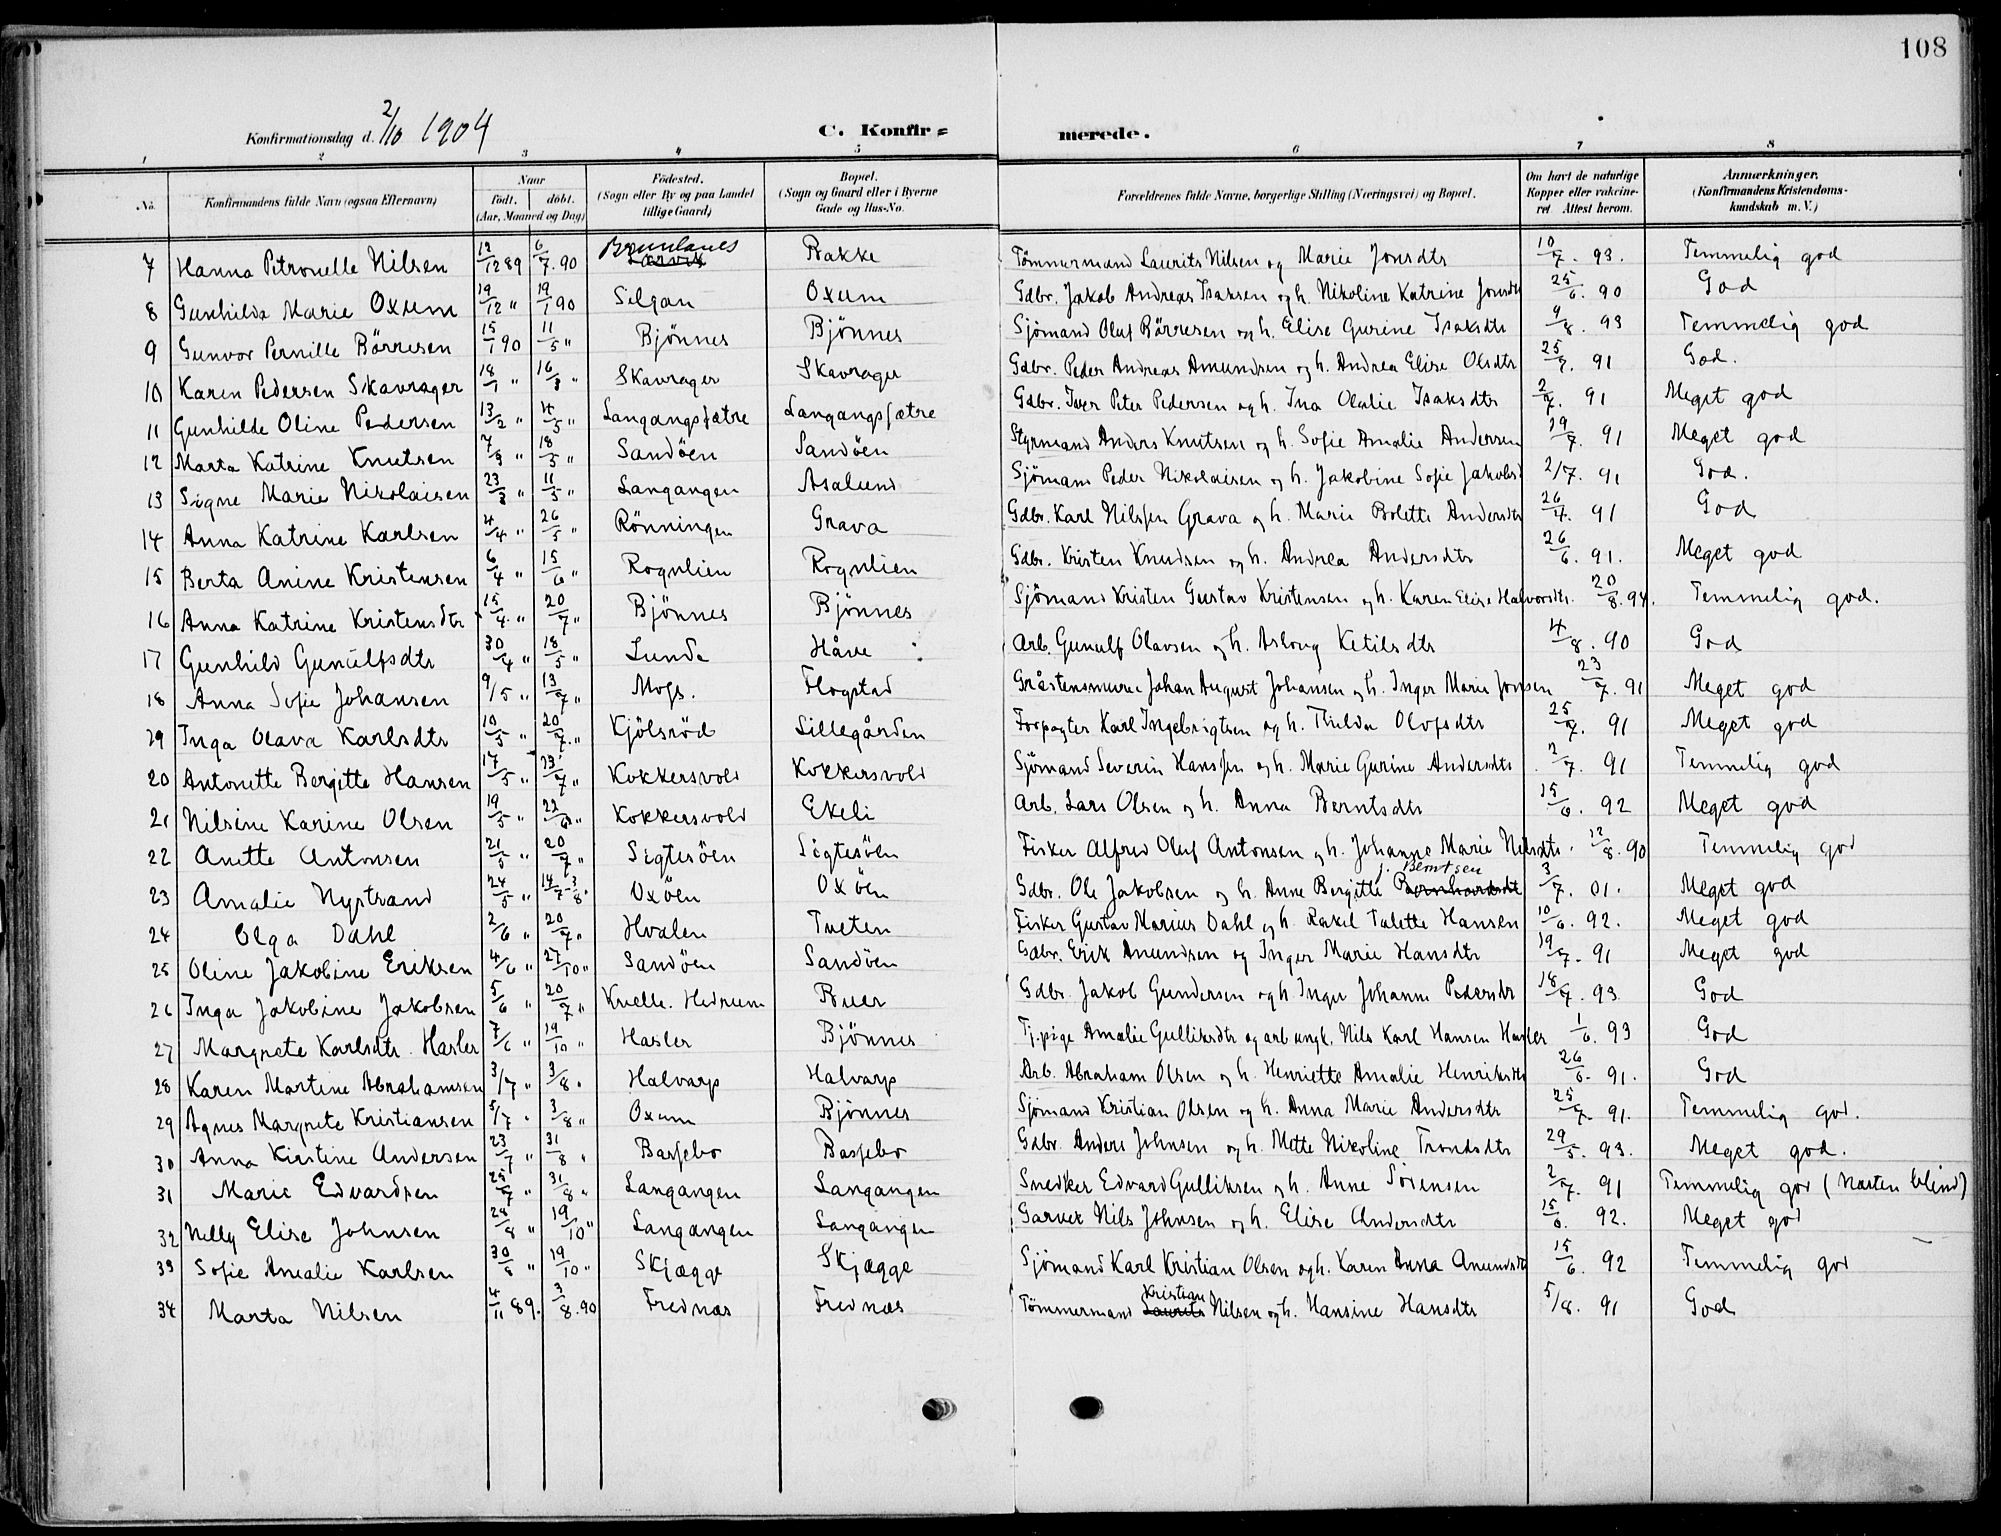 108
Konfirmationsdag d. 2/10 1904 C. Konfir= merede.
1 2 3 4 5 6 7 8
No. Konfirmandens fulde Navn (ogsaa Efternavn) Naar födt. döbt. (Aar, Maaned og Dag) Födested. (Sogn eller By og paa Landet tillige Gaard) Bopæl. (Sogn og Gaard eller i Byerne Gade og Hus-No. Forældrenes fulde Navne, borgerlige Stilling (Næringsvei) og Bopæl. Om havt de naturlige Kopper eller vakcineret. Attest herom. Anmærkninger. (Konfirmandens Kristendomskundskab m. V.)
7 Hanna Petronelle Nilsen 12/12 89 6/7. 90 Brunlanes Larvik Bakke Tömmermand Laurits Nilsen og Marie Jonsdtr 10/7. 93. Temmelig god
8 Gunhilda Marie Oxum 19/12 " 19/1 90 Siljan Oxum Gdbr. Jakob Andreas Isaksen og h. Nikoline Katrine Jonsdtr 25/6. 90 God
9 Gunvor Pernille Börresen 15/1 90 11/5 " Bjönnes Bjönnes Sjömand Oluf Börresen og h. Elise Gurine Isaksdtr 9/8. 93 Temmelig god
10 Karen Pedersen Skavrager 18/1 " 16/3 " Skavrager Skavrager Gdbr. Peder Andreas Amundsen og h. Andrea Elise Olsdtr 25/7. 91 God.
11 Gunhilde Oline Pedersen 13/2 " 4/5 " Langangsfætre Langangsfætre Gdbr. Iver Peter Pedersen og h. Ina Olalie Isaksdtr 2/7. 91 Meget god
12 Marta Katrine Knutsen 7/3 " 18/5 " Sandöen Sandöen Styrmand Anders Knutsen og h. Sofie Amalie Andersen 29/7. 91 Meget god
13 Signe Marie Nikolaisen 23/3 " 11/5 " Langangen Asalund Sjömand Peder Nikolaisen og h. Jakobine Sofie Jakobsd 2/7. 91 God.
14 Anna Katrine Karlsen 4/4 " 26/5 " Rönningen Grava Gdbr. Karl Nilssen Grava og h. Marie Bolette Andersdtr 26/4. 91 God
15 Berta Anine Kristensen 6/4 " 15/6 " Rognlien Rognlien Gdbr. Kristen Knudsen og h. Andrea Andersdtr 26/6. 91. Meget god
16 Anna Katrine Kristensdtr 15/4. " 20/7 " Bjönnes Bjönnes Sjömand Kristen Gustav Kristensen og h. Karen Elise Halvorsdtr. 20/8. 94. Temmelig god.
17 Gunhild Gunulfsdtr 30/4 " 18/5 " Lunde Håve Arb. Gunulf Olavsen og h. Aslaug Ketilsdtr 4/8. 90 God
18 Anna Sofie Johansen 9/5 " 13/7 " Moss. Flogstad Gråstensmurer Johan August Johansen og h. Inger Marie Jonsen 23/7. 91 Meget god
29 Inga Olava Karlsdtr 10/5 " 20/7. " Kjölsröd Lillegården Forpagter Karl Ingebrigtsen og h. Thilda Olofsdtr 25/7. 91 Meget god
20 Antonette Bergitte Hansen 17/5 " 23/7 " Kokkersvold Kokkersvold Sjömand Severin Hanssen og h. Marie Gurine Andersdtr 2/7. 91 Temmelig god
21 Nilsine Karine Olsen 19/5 " 22/6 " Kokkersvold Ekeli Arb. Lars Olsen og h. Anna Berntsdtr 15/6. 92 Meget god
22 Anette Antonsen 21/5 " 20/7 " Sigtesöen Sigtesöen Fisker Alfred Oluf Antonsen og h. Johanne Marie Nilsdtr. 12/8. 90 Temmelig god
23 Amalie Nystrand 24/5 " 14/7-3/8 Oxöen Oxöen Gdbr. Ole Jakobsen og h. Anne Bergitte f. Berntsen Bernhardsdtr 3/7. 01. Meget god
24 Olga Dahl 2/6 " 20/7 " Hvalen Tveten Fisker Gustav Marius Dahl og h. Rakel Talette Hansen 10/6. 92. Meget god
25 Oline Jakobine Eriksen 4/6 " 27/10 " Sandöen Sandöen Gdbr. Erik Amundsen og Inger Marie Hansdtr 19/7. 91 Meget god
26 Inga Jakobine Jakobsen 5/6 " 20/7 " Kvelle. Hedrum Buer Gdbr. Jakob Gundersen og h. Inger Johanne Pedersdtr 18/7. 93 God
27 Margrete Karlsdtr. Hasler 7/6 " 19/10 " Hasler Bjönnes Tj.pige Amalie Gulliksdtr og arb ungk. Nils Karl Hansen Hasler 1/6. 93 God
28 Karen Martine Abrahamsen 3/7 " 3/8 " Halvarp Halvarp Arb. Abraham Olsen og h. Henriette Amalie Henriksdtr 26/6. 91. God
29 Agnes Margrete Kristiansen 5/7 " 3/8 " Oxum Bjönnes Sjömand Kristian Olsen og h. Anna Marie Andersdtr 25/7. 91. Temmelig god.
30 Anna Kirstine Andersen 23/7 " 31/8 " Bassebo Bassebo Gdbr. Anders Johnsen og h. Mette Nikoline Trondsdtr 29/5. 93. Meget god.
31 Marie Edvardsen 25/7 " 31/8 " Langangen Langangen Snedker Edvard Gulliksen og h. Anne Sörensen 2/7. 91 Temmelig god (næsten blind)
32 Nelly Elise Johnsen 28/8 " 19/10 " Langangen Langangen Garver Nils Johnsen og h. Elise Andersdtr 15/6. 92. Meget god
33 Sofie Amalie Karlsen 30/8 " 19/10 " Skjægge Skjægge Sjömand Karl Kristian Olsen og h. Karen Anna Amundsdtr 15/6. 92 Temmelig god
34 Marta Nilsen 4/11 89. 3/8. 90 Frednæs Frednæs Tömmermand Kristian Laurits Nilsen og h. Hansine Hansdtr 5/8. 91 God